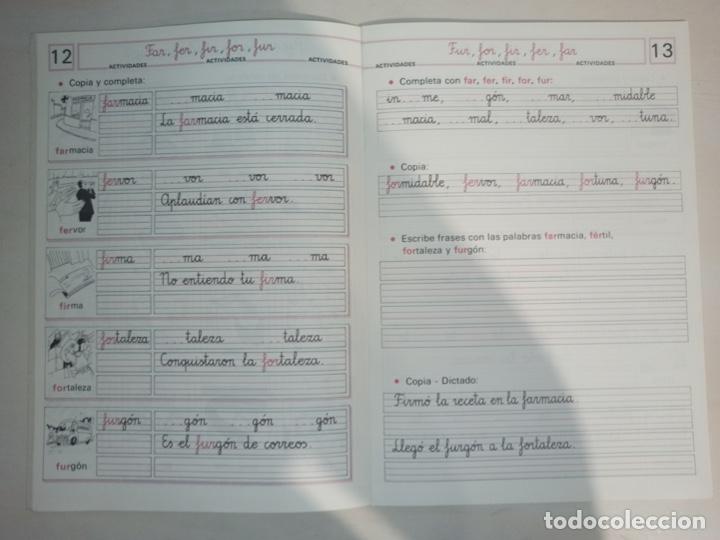 12
Far, fer, fir, for, fur
ACTIVIDADES ACTIVIDADES ACTIVIDADES
• Copia y completa:
farmacia
farmacia ...macia ...macia
La farmacia está cerrada.
fervor
fervor ...vor ...vor ...vor
Aplaudían con fervor.
firma
firma ...ma ...ma ...ma
No entiendo tu firma.
fortaleza
fortaleza ...taleza ...taleza
Conquistaron la fortaleza.
furgón
furgón ...gón ...gón ...gón
Es el furgón de correos.
Fur, for, fir, fer, far
13
ACTIVIDADES ACTIVIDADES ACTIVIDADES
• Completa con far, fer, fir, for, fur:
in...me, ...gón, ...mar, ...midable
...macia, ...mal, ...taleza, ...vor, ...tuna.
• Copia:
formidable, fervor, farmacia, fortuna, furgón.
• Escribe frases con las palabras farmacia, fértil,
fortaleza y furgón:
• Copia - Dictado:
Firmó la receta en la farmacia.
Llegó el furgón a la fortaleza.
todocoleccion.net